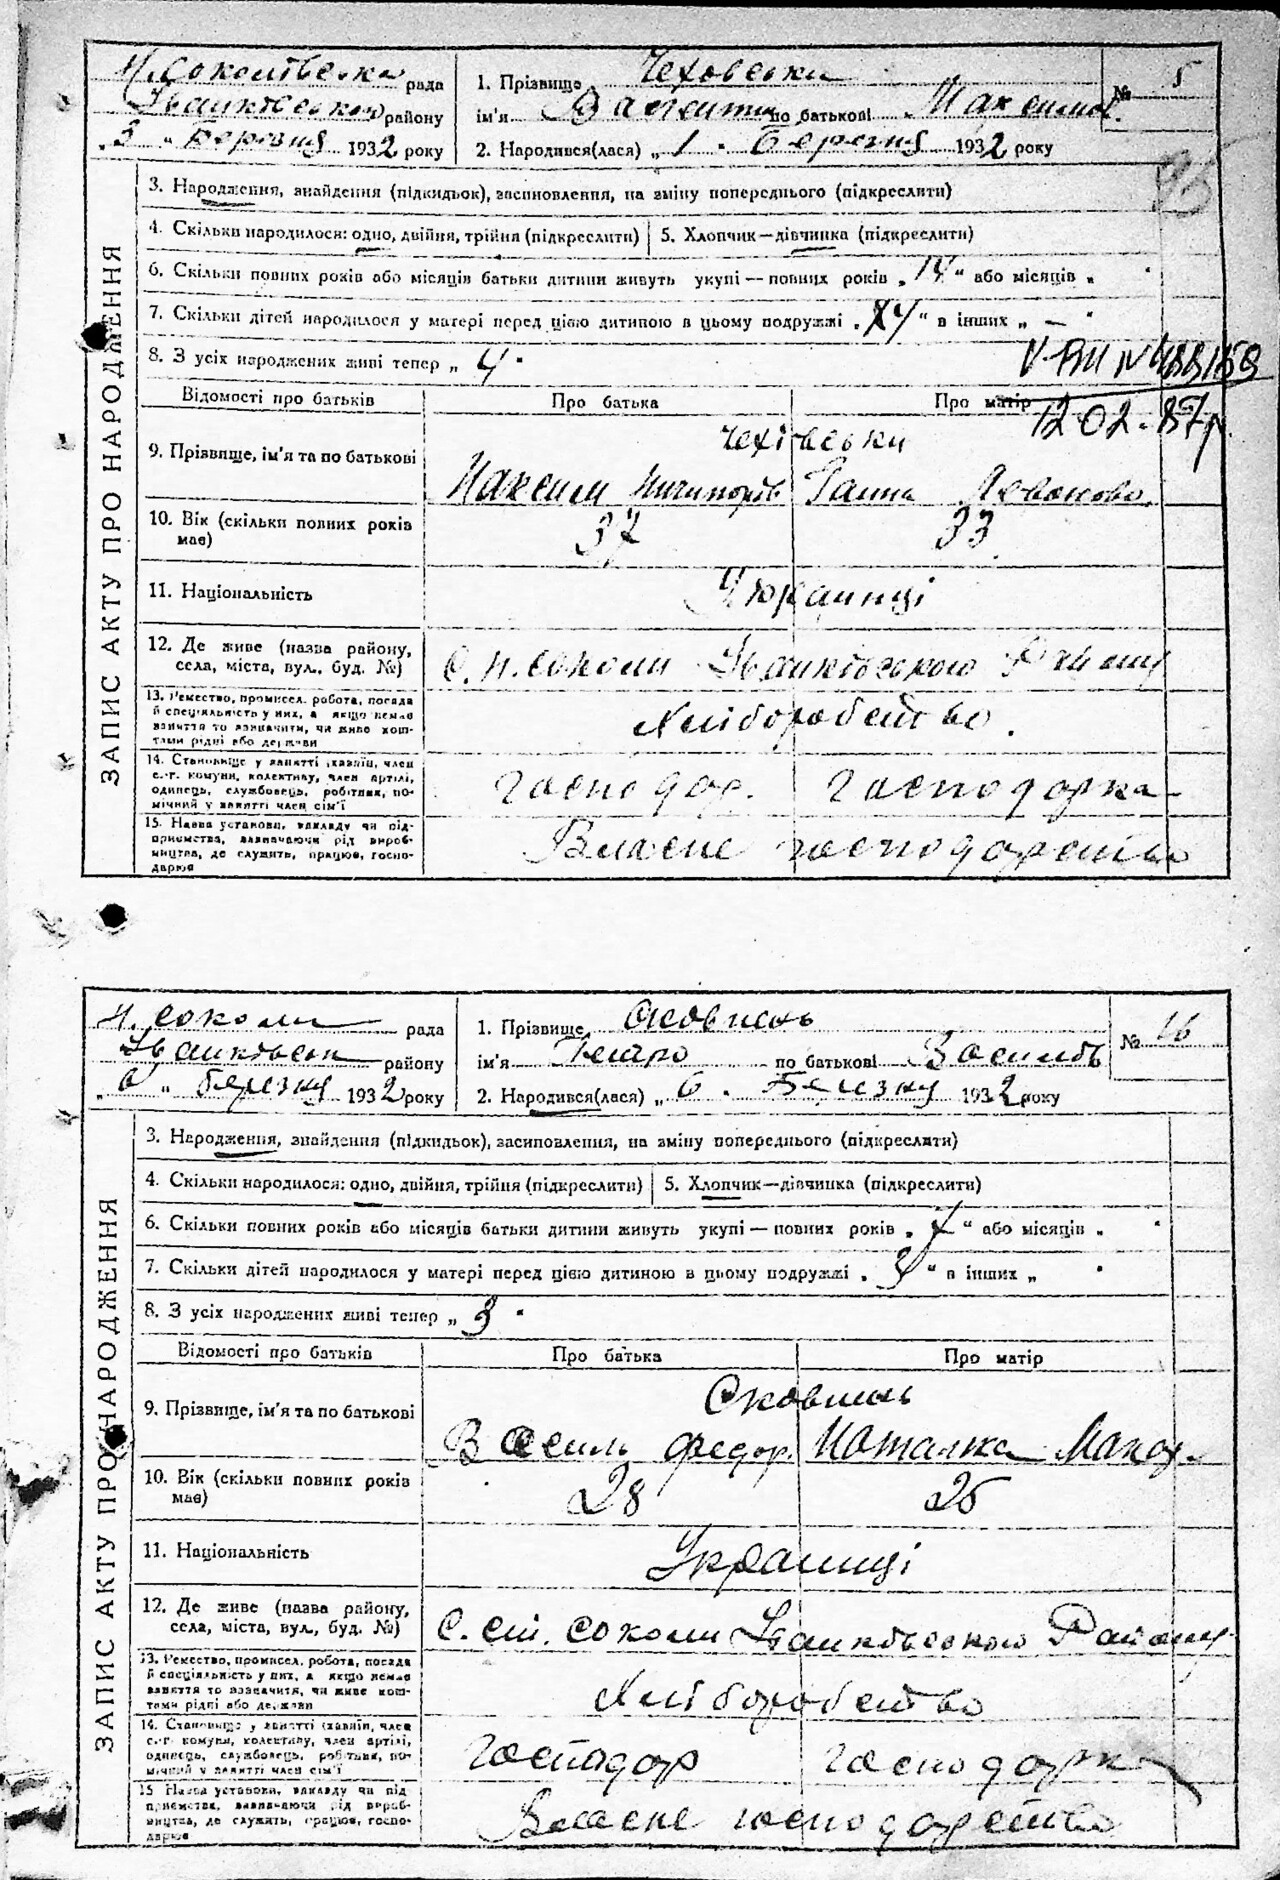 рада
району
"3" Березня 1932 року
1. Прізвище Чеховська
ім'я по батькові Максимов.
№ 5
2. Народився(лася) „1" Березня 1932 року
95
3. Народження, знайдення (підкидьок), засиновлення, на зміну попереднього (підкреслити)
4. Скільки народилося: одно, двійня, трійня (підкреслити)
5. Хлопчик—дівчинка (підкреслити)
6. Скільки повних років або місяців батьки дитини живуть укупі — повних років „14" або місяців „ "
7. Скільки дітей народилося у матері перед цією дитиною в цьому подружжі „4" в інших „—"
8. З усіх народжених живі тепер „4"
12.02.87р
Відомості про батьків
Про батька
Про матір
ЗАПИС АКТУ ПРО НАРОДЖЕННЯ
9. Прізвище, ім'я та по батькові
Чехівськи
Максим Ничипорів
Ганна
10. Вік (скільки повних років має)
37
33
11. Національність
Украинці
12. Де живе (назва району,
села, міста, вул., буд. №)
С. Н. Соколи Іванківського Району
13. Ремество, промисел, робота, посада
й спеціяльність у них, а якщо немає
заняття то зазначити, чи живе кош-
тами рідні або держави
Хліборобство.
14. Становище у занятті (хазяїн, член
с.-г. комуни, колективу, член артілі,
одинець, службовець, робітник, по-
мічний у занятті член сім'ї
господар.
господарка
15. Назва установи, закладу чи під-
приємства, зазначаючи рід вироб-
ництва, де служить, працює, госпо-
дарює
Власне господарство
Н. Соколи рада
району
„6" березня 1932 року
1. Прізвище
ім'я Петро по батькові Василів
№ 16
2. Народився(лася) „6" Березня 1932 року
3. Народження, знайдення (підкидьок), засиновлення, на зміну попереднього (підкреслити)
4. Скільки народилося: одно, двійня, трійня (підкреслити)
5. Хлопчик—дівчинка (підкреслити)
6. Скільки повних років або місяців батьки дитини живуть укупі — повних років „7" або місяців „ "
7. Скільки дітей народилося у матері перед цією дитиною в цьому подружжі „3" в інших „ "
8. З усіх народжених живі тепер „3"
Відомості про батьків
Про батька
Про матір
ЗАПИС АКТУ ПРО НАРОДЖЕННЯ
9. Прізвище, ім'я та по батькові
Василь Федор.
Наталка Макар.
10. Вік (скільки повних років має)
28
25
11. Національність
Украинці
12. Де живе (назва району,
села, міста, вул., буд. №)
С. Соколи Іванківського Району
13. Ремество, промисел, робота, посада
й спеціяльність у них, а якщо немає
заняття то зазначити, чи живе кош-
тами рідні або держави
Хліборобство
14. Становище у занятті (хазяїн, член
с.-г. комуни, колективу, член артілі,
одинець, службовець, робітник, по-
мічний у занятті член сім'ї
господар
господарка
15. Назва установи, закладу чи під-
приємства, зазначаючи рід вироб-
ництва, де служить, працює, госпо-
дарює
Власне господарство